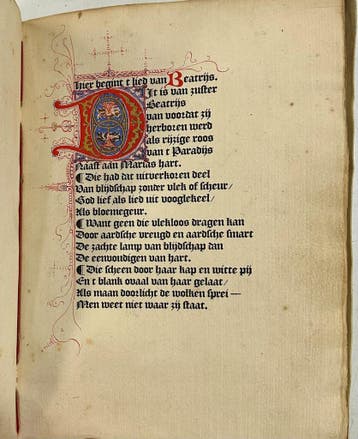 Hier begint t lied van Beatrijs.
Dit is van zuster
Beatrijs
van voordat zij
herboren werd
als rijzige roos
van t Paradijs
Naast aan Marias hart.
¶ Die had dat uitverkoren deel
Van blijdschap zonder vlek of scheur/
God lief als lied uit vooglekeel/
Als bloemegeur.
¶ Want geen die vlekloos dragen kan
Door aardsche vreugd en aardsche smart
De zachte lamp van blijdschap dan
De eenvoudigen van hart.
¶ Die scheen door haar kap en witte pij
En t blank ovaal van haar gelaat/
Als maan doorlicht de wolken sprei —
Men weet niet waar zij staat.